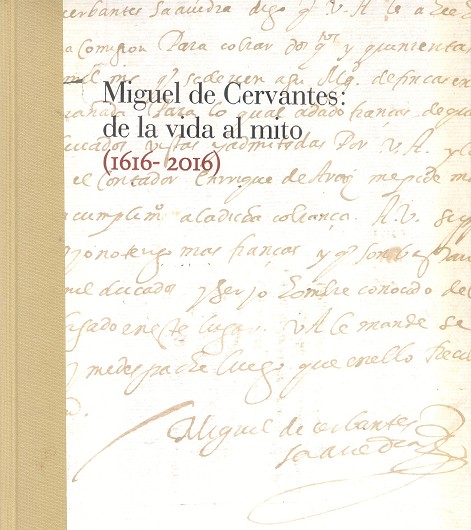 cerbantes Saavedra digo q̃ V A le a
a comision Para cobrar dos q.tos y quinientas
mil mrs q̃ se deven a su Mg. de fincas en
Miguel de Cervantes:
de la vida al mito
(1616-2016)
granada Para lo qual a dado fianças de
ducados vistas y admitidas Por V. A. y
el Contador Enrique de Arayz me pide
cumplim.º a la dicha cobrança. A. V.
yo no tengo mas fianças y q̃ son bas
mil ducados y ser yo hombre conocido de
casado en este lugar. V A le mande se
y me despache luego, que en ello
d.
Miguel de cerbantes
saavedra